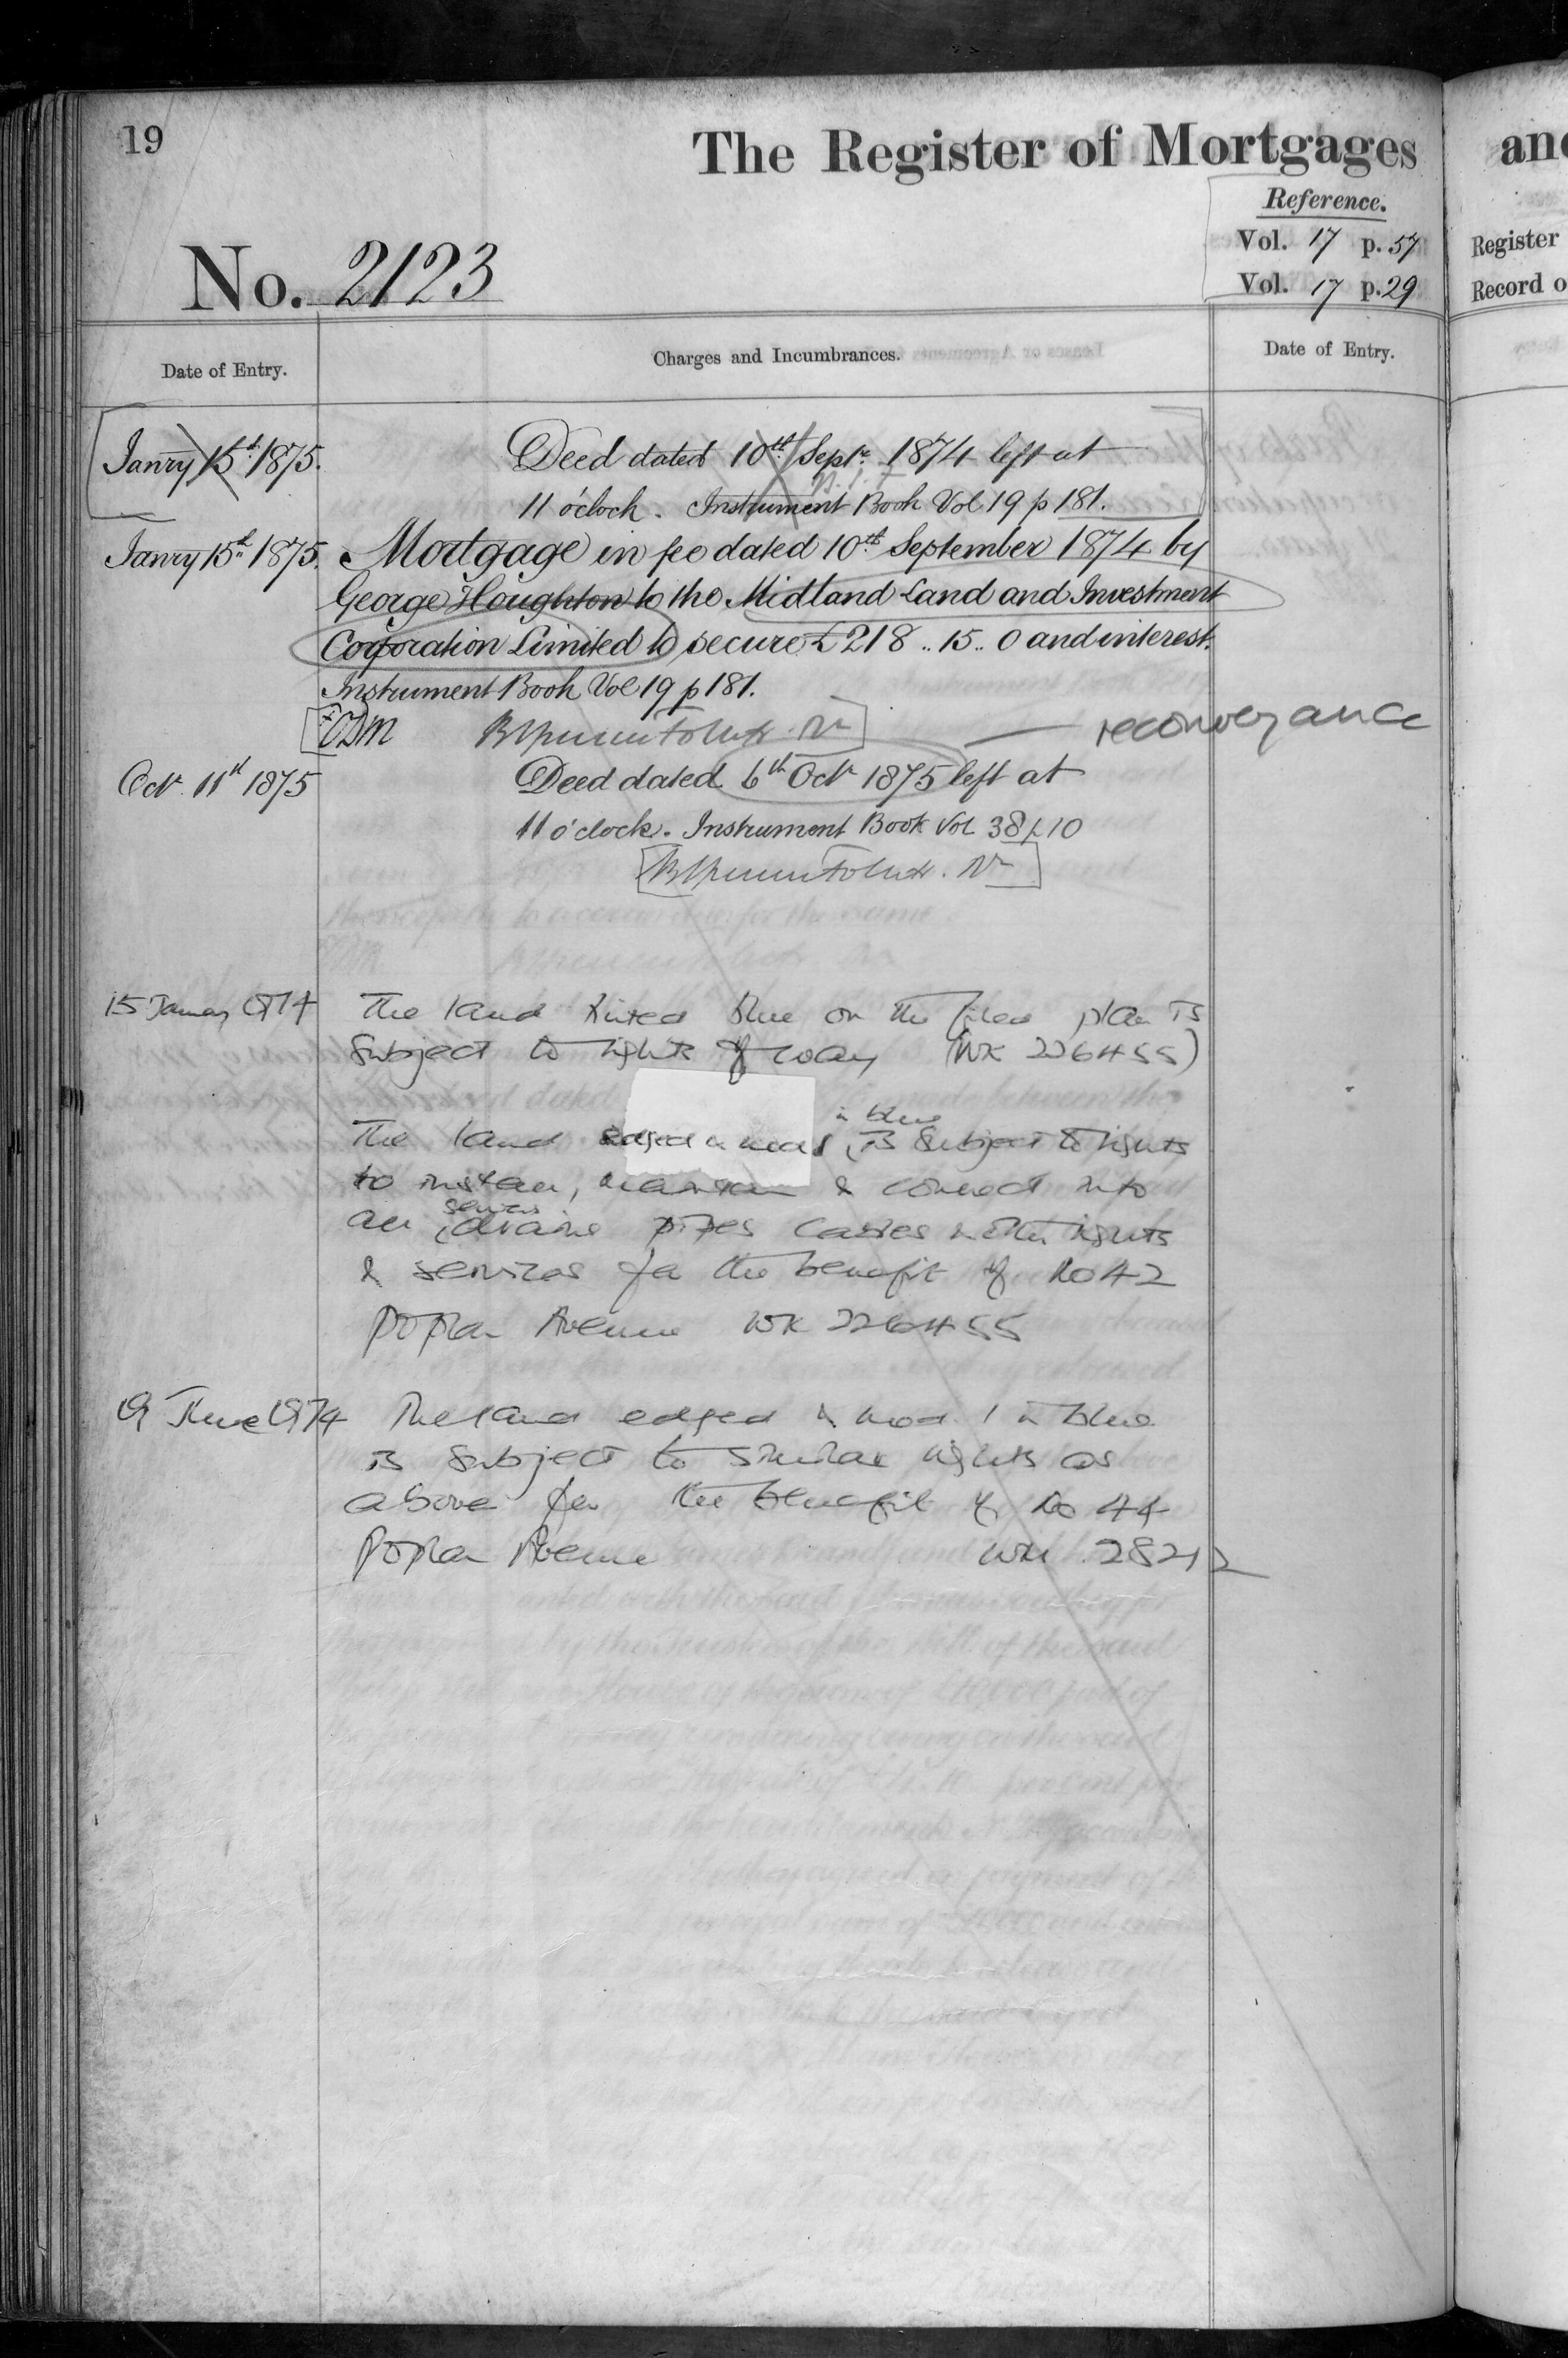 19
The Register of Mortgages
and
Reference.
Vol. 17 p. 57
Vol. 17 p. 29
Register
Record o
No. 2123
Date of Entry.
Charges and Incumbrances.
Date of Entry.
Janry 15th 1875.
Deed dated 10th Septr. 1874 left at
11 o'clock. Instrument Book Vol 19 p 181.
Janry 15th 1875. Mortgage in fee dated 10th September 1874 by
George Houghton to the Midland Land and Investment
Corporation Limited to secure £218 .. 15 .. 0 and interest.
Instrument Book Vol 19 p 181.
reconveyance
Oct. 11th 1875
Deed dated 6th Octr 1875 left at
11 o'clock. Instrument Book Vol 38 p 10
15 January 1974 The land tinted blue on the filed plan is
subject to rights of way (WK 226455)
in blue
The land edged & no 1, is subject to rights
to install, maintain & connect into
all drains pipes cables & other rights
sewers
& services for the benefit of No 42
Poplar Avenue WK 226455
19 June 1974 The land edged & no 1 in blue
is subject to similar rights as
above for the benefit of No 44
Poplar Avenue WK 28212